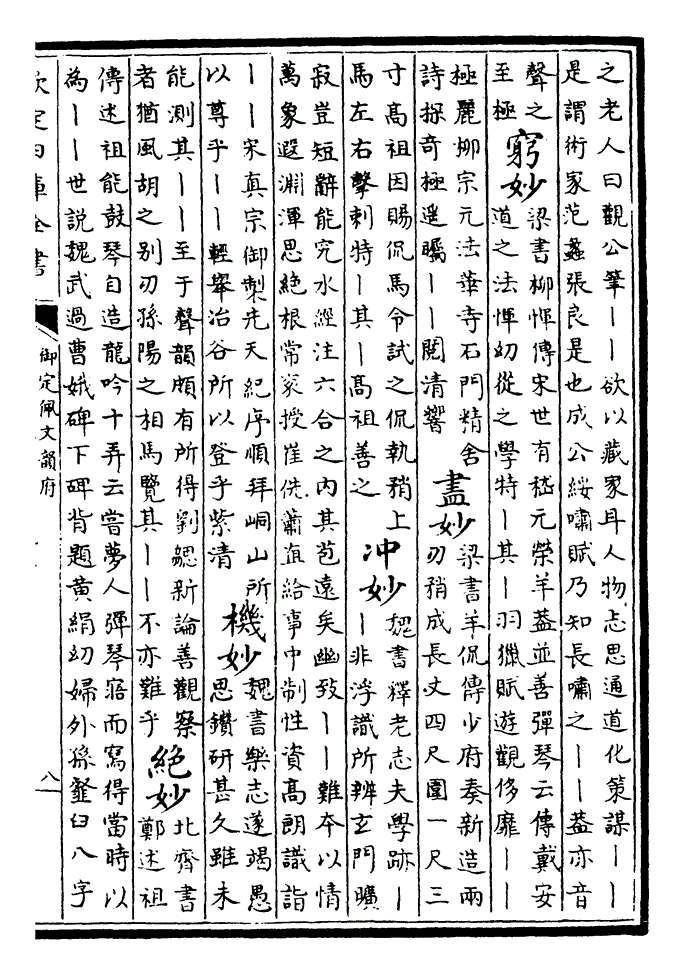 之老人曰觀公筆丨丨欲以藏家耳人物志思通道化策謀丨丨
是謂術家范蠡張良是也成公綏嘯賦乃知長嘯之丨丨葢亦音
聲之
至極
窮妙
梁書柳惲傳宋世有嵇元榮羊葢並善彈琴云傳戴安
道之法惲幼從之學特丨其丨羽獵賦遊觀侈靡丨丨
極麗柳宗元法華寺石門精舍
詩探奇極遥矚丨丨閲清響
盡妙
梁書羊侃傳少府奏新造兩
刃矟成長丈四尺圍一尺三
寸高祖因賜侃馬令試之侃執矟上
馬左右擊刺特丨其丨高祖善之
冲妙
魏書釋老志夫學跡丨
丨非浮識所辨玄門曠
寂豈短辭能究水經注六合之内其苞遠矣幽致丨丨難本以情
萬象遐淵渾思絶根常衮授崔侁蕭直給事中制性資高朗識詣
丨丨宋真宗御製先天紀序順拜峒山所
以尊乎丨丨輕舉冶谷所以登乎紫清
機妙
魏書樂志遂竭愚
思鑽研甚久雖未
能測其丨丨至于聲韻頗有所得劉勰新論善觀察
者猶風胡之别刃孫陽之相馬覽其丨丨不亦難乎
絶妙
北齊書
鄭述祖
傳述祖能鼓琴自造龍吟十弄云嘗夢人彈琴寤而寫得當時以
為丨丨世説魏武過曹娥碑下碑背題黄絹幼婦外孫虀臼八字
欽定四庫全書
御定佩文韻府
八